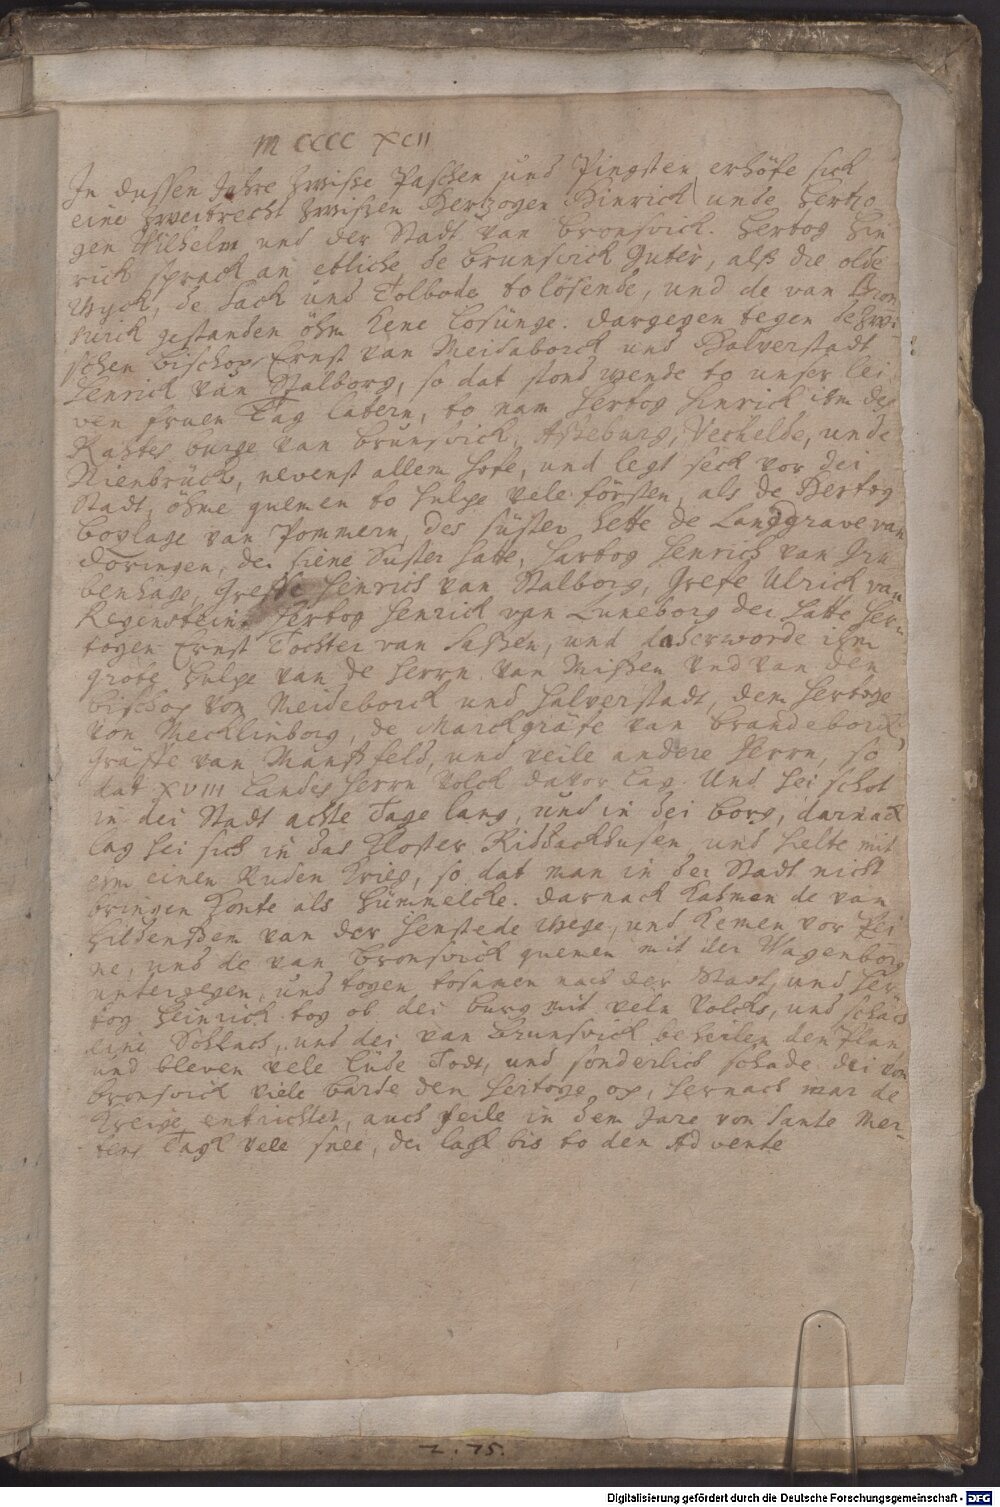 M CCCC XCII
In dussen Jahre zwisse Paschen und Pingsten erhöfe sick
eine zweitrecht zwißen Hertzogen Hinrick unde Hertzo
gen Wilhelm und der Stadt van Bronswick. Hertog Hin
rick sprack an etliche de Brunswick Guter, alß die olde
Wyck, de Sack und Tolbode tolösende, und de van Bron
swick gestanden öhm kene Losünge. dargegen tegen de zwi-
schen Bischop Ernst van Meidaborck und Halverstadt
Henrick van Stalborg, so dat stond wende to unser lei
ven fruen Tag latern, to nam Hertog Hinrick ihm des
Rahtes burge van Brunswick, Asseburg, Vechelde, unde
Nienbrück, nevenst allem Hofe, und legt seck vor dei
Stadt, öhme quemen to hulpe vele försten, als de Hertog
Boylage van Pommern, des süster hette de Landgrave van
Döringen, dei siene Suster hatte, Hartog Henrich van Gru
benhage, Greffe Henrich van Stalborg, Grefe Ulrick van
Regenstein, Hertog Henrick van Luneborg dei hatte Her-
togen Ernst Tochter van Saßen, und daherworde ihm
grote hulpe van de Herrn van Mißen und van den
Bischop von Meideborck und Halverstadt, dem Hertoge
von Mecklinborg, de Marckgräfe van Brandeborch,
Gräffe van Manßfeld, und veile andere Herrn, so
dat XVIII Landes Herrn Volck davor lag. Und hei schot
in dei Stadt achte Tage lang, und in dei borg, darnach
lag hei sich in das Kloster Riddachhusen und helte mit
ehm einen Ruden Krieg, so dat man in dei Stadt nicht
bringen konte als Hümmelcke. darnach kahmen de van
Hildenßem van der Henstede wege, und kemen vor Pei
ne, und de van Bronswick quemen mit der Wagenborg
untergegen, und togen tosamen nach der Stadt, und Her
tog Heinrick tog ob dei burg mit veln Volcks, und schach
eine Schlach, und dei van Brunswick beheilen den Plan
und bleven vele Lüde Todt, und sonderlich schade dei von
Bronswick viele barde den Hertoge op, hernach war de
Kreige entrichtet, auch feile in dem Jare von Sante Mer-
tens Tage vele snee, dei lach bis to den Advente
Z. 75.
Digitalisierung gefördert durch die Deutsche Forschungsgemeinschaft - DFG